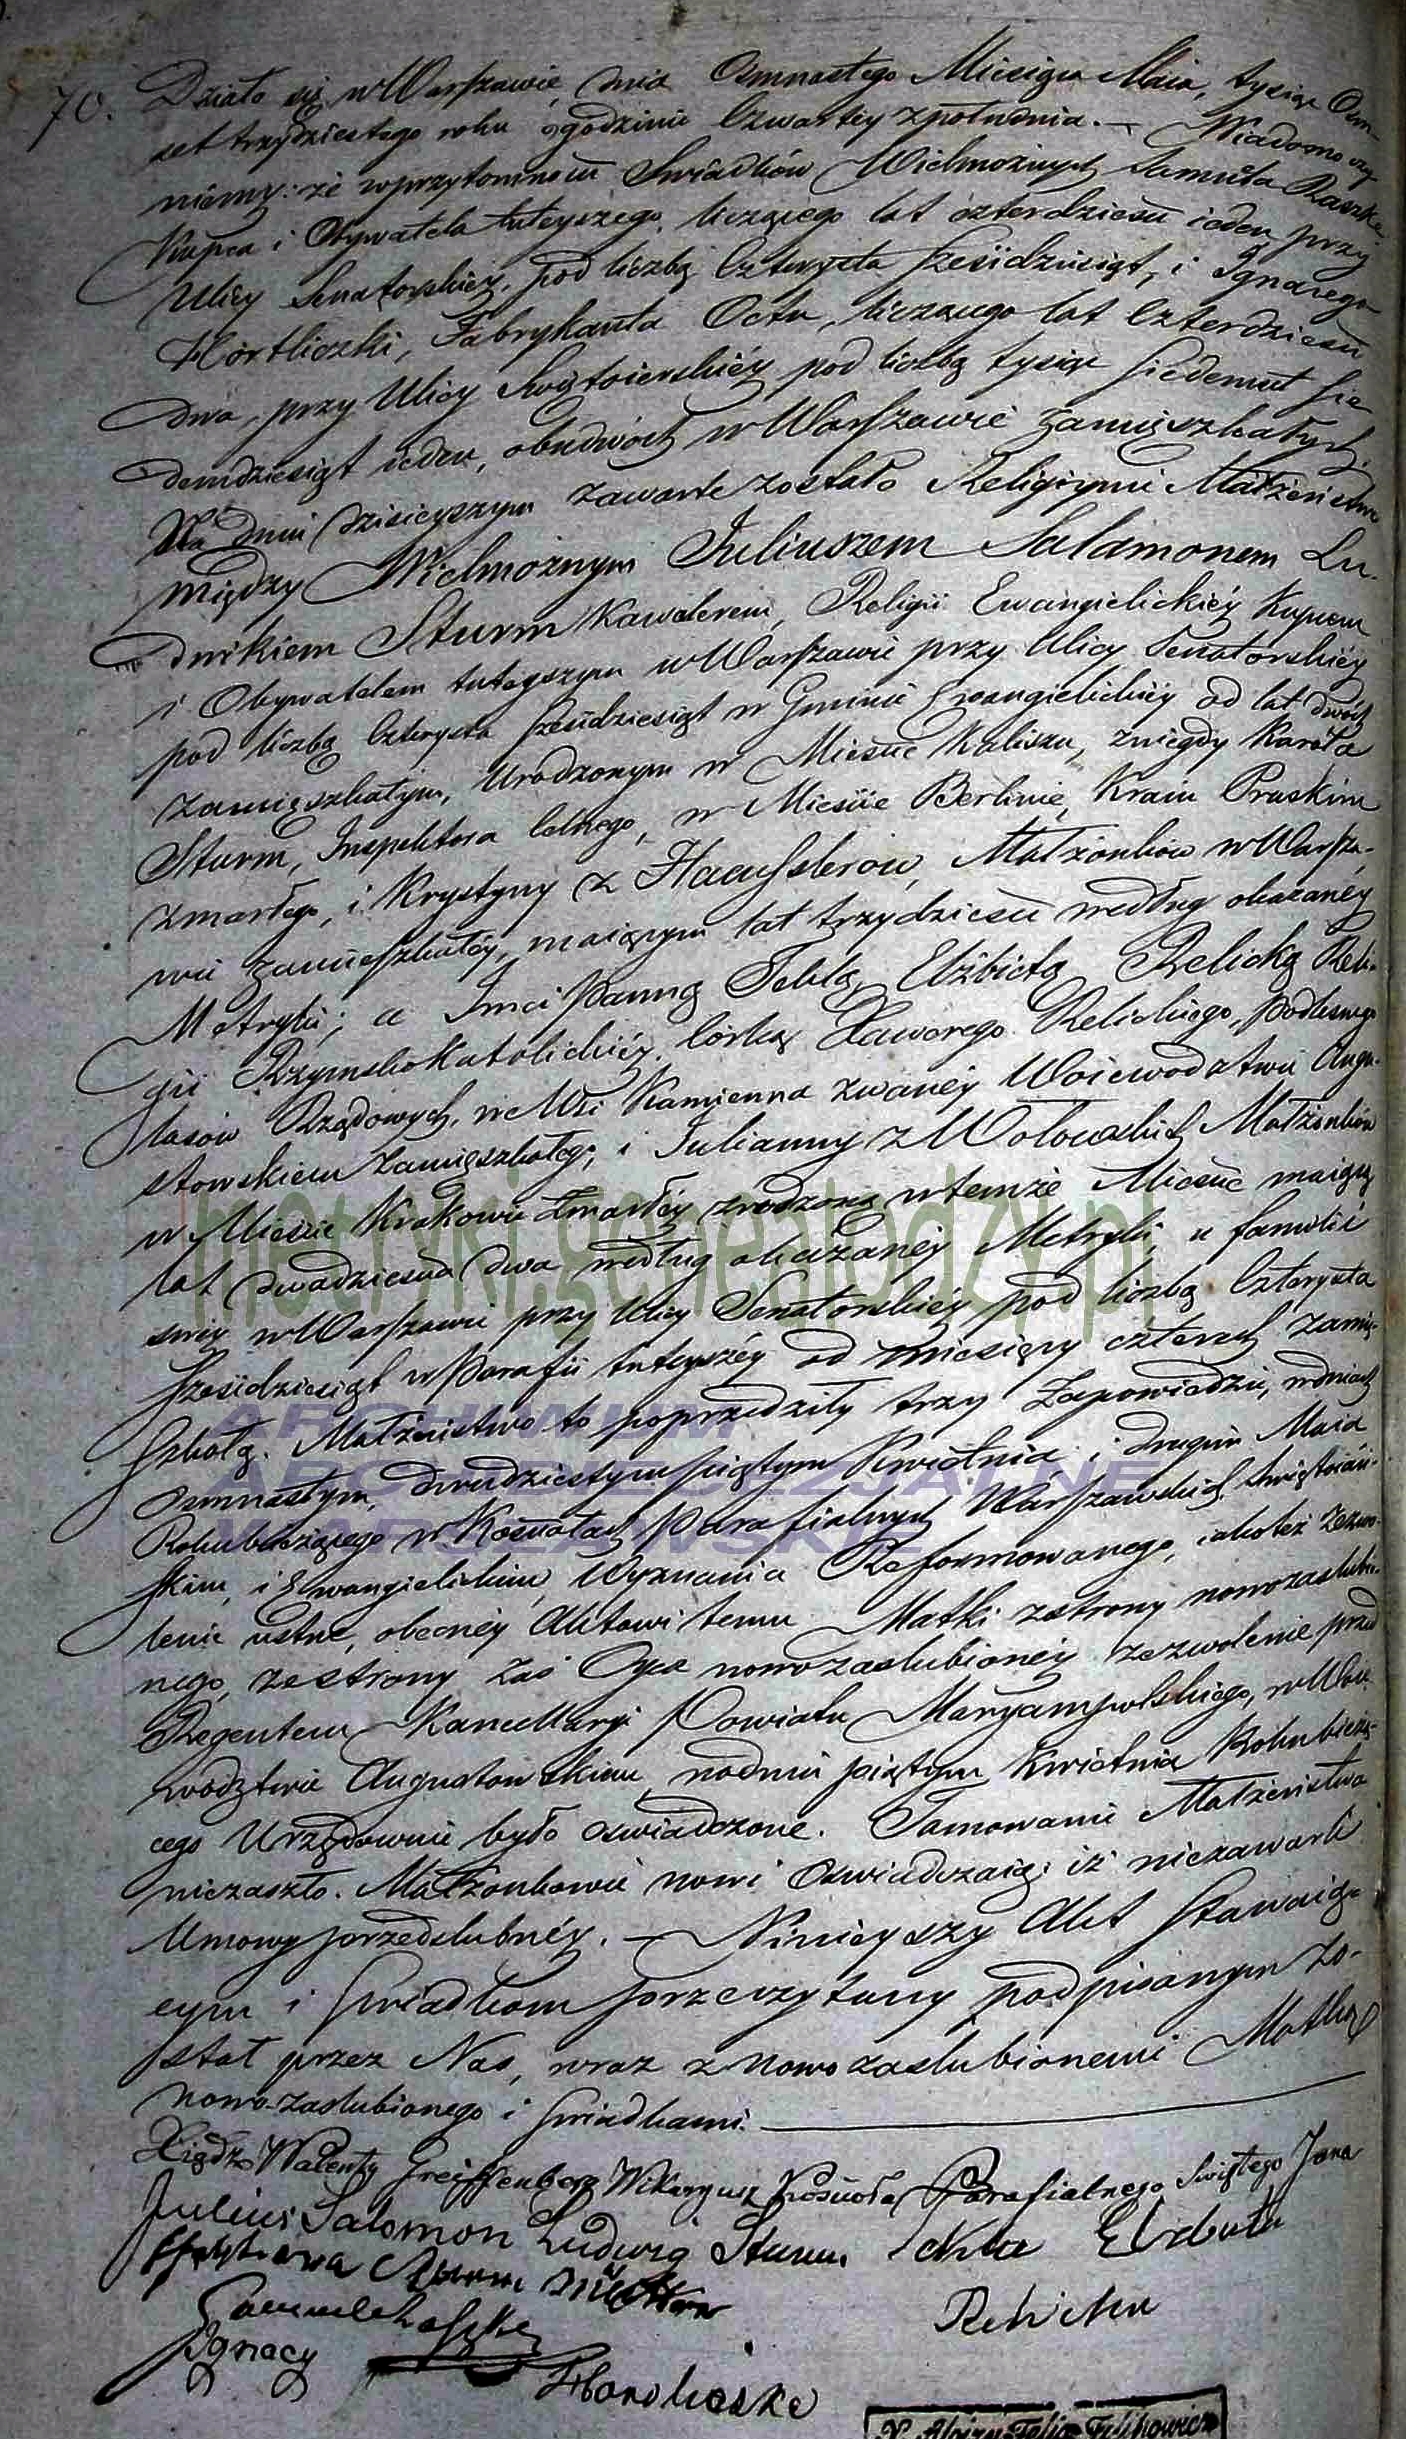 70. Działo się w Warszawie, dnia Osmnastego Miesiąca Maia, tysiąc Osm-
set trzydziestego roku ogodzinie Czwartey zpołudnia. — Wiadomo czy
niemy: że wprzytomności Swiadków Wielmożnych Samuela Raszke
Kupca i Obywatela tuteyszego, liczącego lat czterdzieści ieden przy
Ulicy Senatorskiey, pod liczbą Czterysta sześćdziesiąt, i Ignacego
Hortliczki, Fabrykanta Octu, liczącego lat Czterdzieści
dwa, przy Ulicy Swiętoierskiéy pod liczbą tysiąc siedemset sie
demdziesiąt ieden, obudwóch w Warszawie zamięszkałych.
Na dniu dzisieyszym zawarte zostało Religiyne Małżeństwo
między Wielmożnym Juliuszem Salamonem Lu-
dwikiem Sturm Kawalerem, Religii Ewangielickiéy Kupcem
i Obywatelem tuteyszym w Warszawie przy Ulicy Senatorskiéy
pod liczbą Czterysta sześćdziesiąt w Gminie Ewangielickiéy od lat dwóch
zamięszkałym, Urodzonym w Mieście Kaliszu, zniegdy Karola
Sturm, Inspektora Celnego, w Mieście Berlinie, Kraiu Pruskim
zmarłego, i Krystyny z Haeusslerow, Małżonków w Warsza-
wie zamieszkałéy, maiącym lat trzydzieści według okazanéy
Metryki; a Imci Panną Teklą Elżbietą Relicką Reli-
gii RzymskoKatolickiéy, Córką Xawerego Relickiego, podleśnego
lasów Rządowych, we Wsi Kamienna zwanéy Woiewodztwie Augu-
stowskiem zamięszkałego, i Julianny z Wołowskich Małżonków
w Mieście Krakowie zmarłéy zrodzoną wtemże Mieście maiącą
lat dwadzieścia dwa według okazanéy Metryki, u familii
swéy w Warszawie przy Ulicy Senatorskiéy pod liczbą Czterysta
sześćdziesiąt w Parafii tuteyszéy od miesięcy czterech zamię-
szkałą. Małżeństwo to poprzedziły trzy Zapowiedzie, wdniach
Osmnastym, dwudziestym piątym Kwietnia i drugim Maia
Rokubieżącego w Kościołach Parafialnych Warszawskich Swiętoiań-
skim, i Ewangielickim, Wyznania Reformowanego, iakoteż zezwo-
lenie ustne, obecnéy Aktowi temu Matki zstrony nowozaslubio-
nego, zestrony zaś Oyca nowozaslubionéy zezwolenie przed
Regentem Kancellaryi Powiatu Maryampolskiego, w Woie-
wodztwie Augustowskiem nadniu piątym Kwietnia Rokubieżą-
cego Urzędownie było oswiadczone. Tamowanie Małżeństwa
niezaszło. Małżonkowie nowi Oswiadczaią; iż niezawarli
Umowy przedslubnéy. — Ninieyszy Akt Stawaią-
cym i swiadkom przeczytany podpisanym zo-
stał przez Nas, wraz z nowozaslubionemi Matką
nowo-zaslubionego i swiadkami.
Xiądz Walenty Greiffenberg Wikaryusz Kościoła Parafialnego Swiętego Jana
Julius Salomon Ludwig Sturm Tekla Elzbieta
Relicka
Samuel Raszke
Ignacy Hordliczke